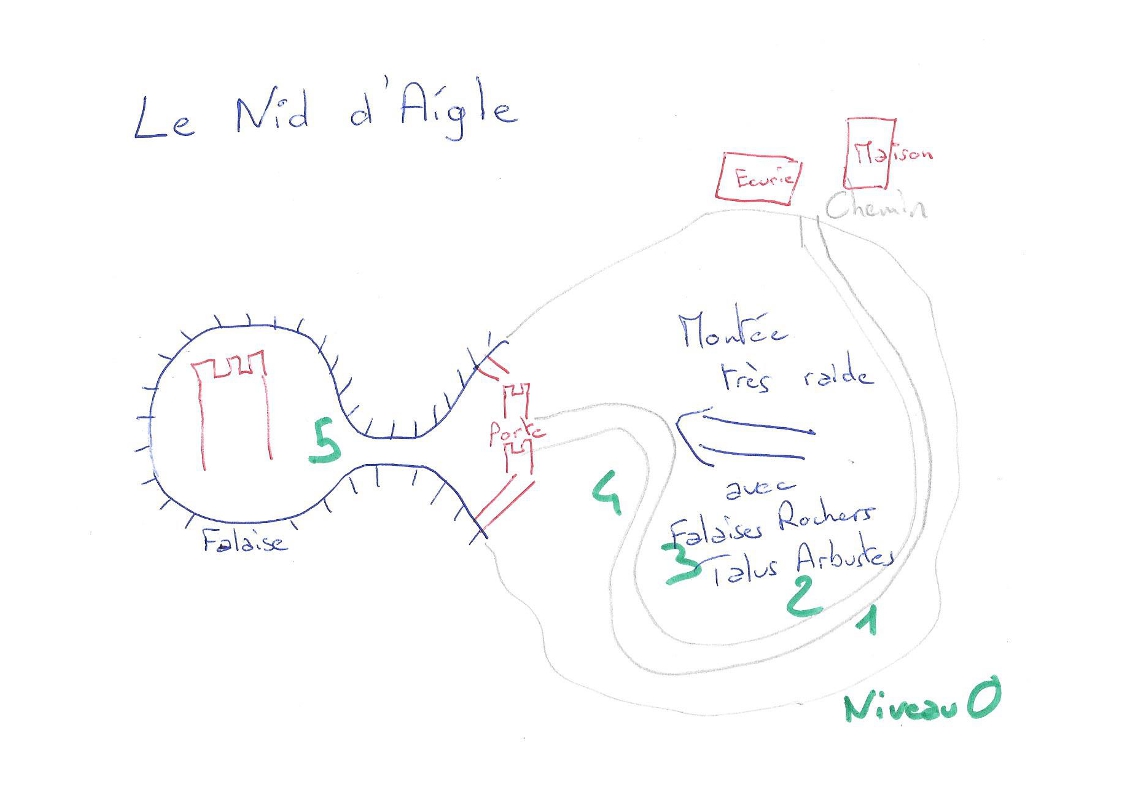 Le Nid d'Aigle
Maison
Ecurie
Chemin
Montée
très raide
Porte
5
4
avec
Falaises Rochers
3
Talus Arbustes
Falaise
2
1
Niveau 0